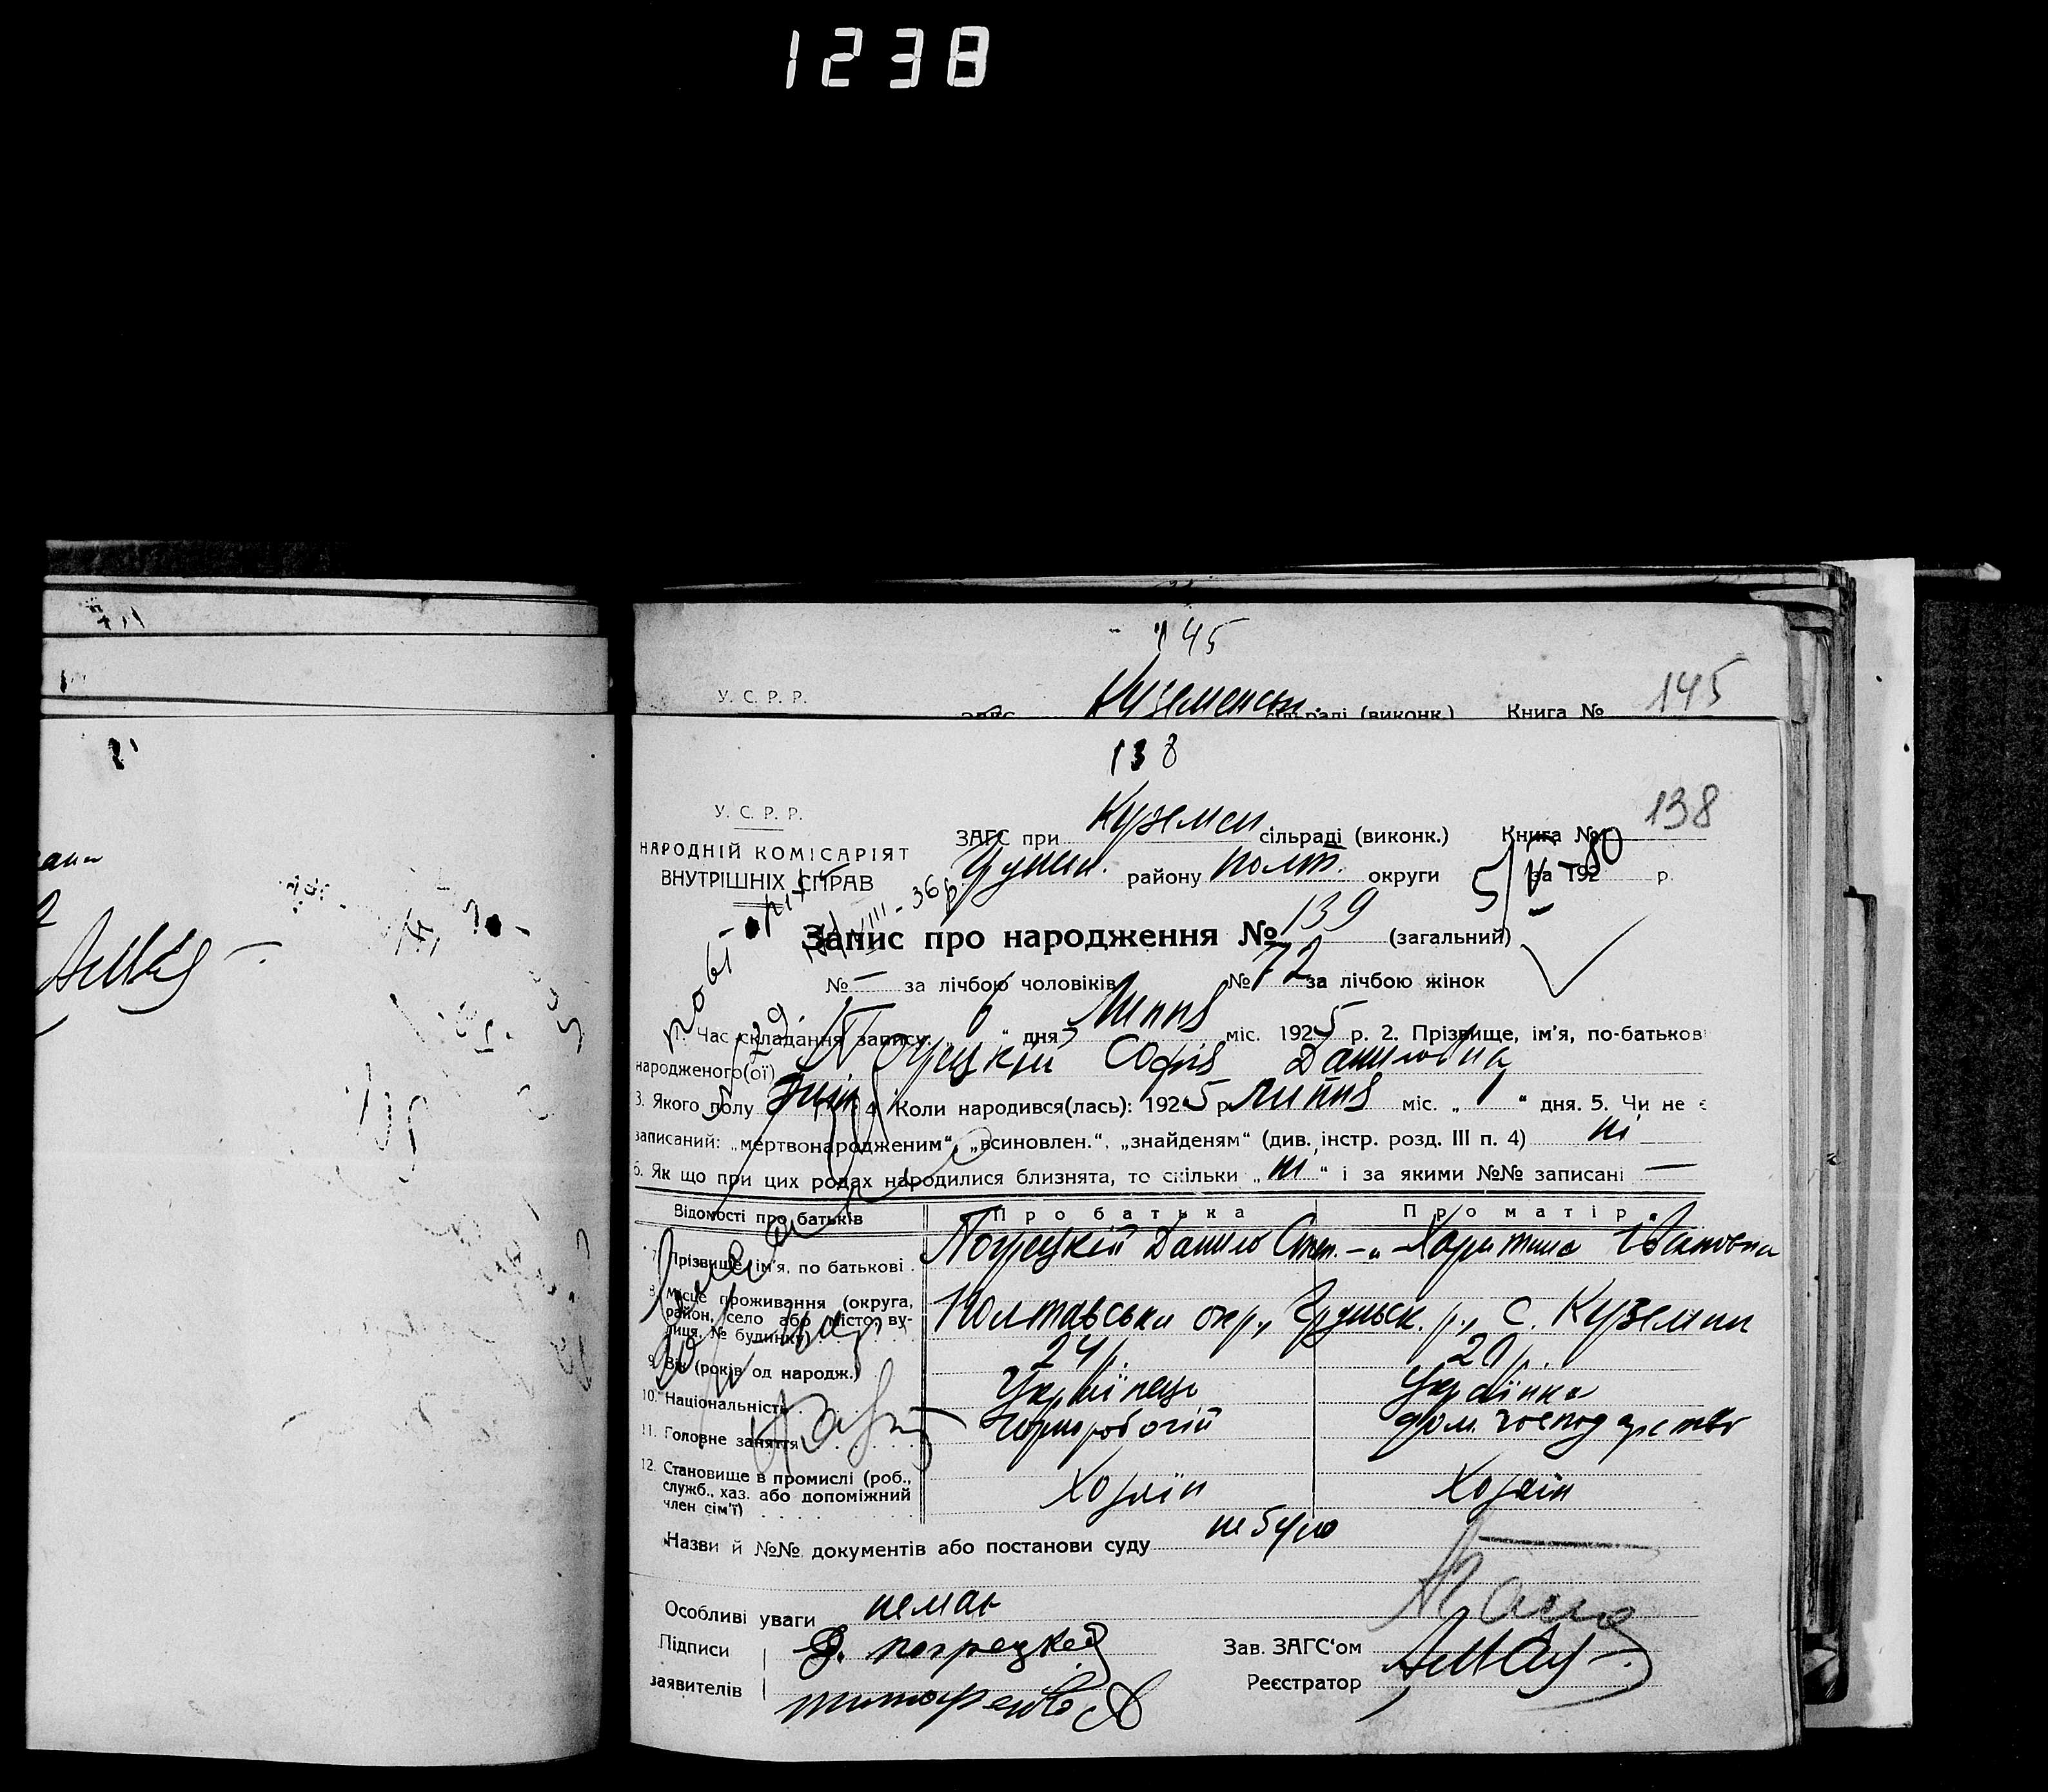 1238
145
У. С. Р. Р.
ЗАГС Куземенськ. сільраді (виконк.) Книга № 145
138
У. С. Р. Р.
НАРОДНІЙ КОМІСАРІЯТ
ВНУТРІШНІХ СПРАВ
ЗАГС при Куземен сільраді (виконк.) Книга № 138
Грунск. району полт. округи за 192 р.
Запис про народження № 139 (загальний)
№ — за лічбою чоловіків № 72 за лічбою жінок
1. Час складання запису. „6“ дня Липня міс. 1925 р. 2. Прізвище, ім'я, по-батькові
народженого(ої) Погрецкій Софія Даниловна
3. Якого полу жін 4. Коли народився(лась): 1925 р. липня міс. „ “ дня. 5. Чи не є
записаний: „мертвонародженим“, „всиновлен.“, „знайденям“ (див. інстр. розд. III п. 4) ні
6. Як що при цих родах народилися близнята, то скільки „ні“ і за якими №№ записані —
Відомості про батьків Про батька Про матір
7. Прізвище, ім'я, по батькові Погрецкій Данило Степ. —„— Харитина Івановна
8. Місце проживання (округа, район, село або місто, вулиця, № будинку) Полтавська окр., Грунськ. р., с. Куземин
9. Вік (років од народж.) 24 р. 20 р.
10. Національність Українець Українка
11. Головне заняття Чорноробочій дом. господарство
12. Становище в промислі (роб., служб., хаз. або допоміжний член сім'ї) Хозяїн Хозяїн
Назви й №№ документів або постанови суду не було
Особливі уваги немає
Підписи Д. погрецкей Зав. ЗАГС'ом
заявителів Реєстратор